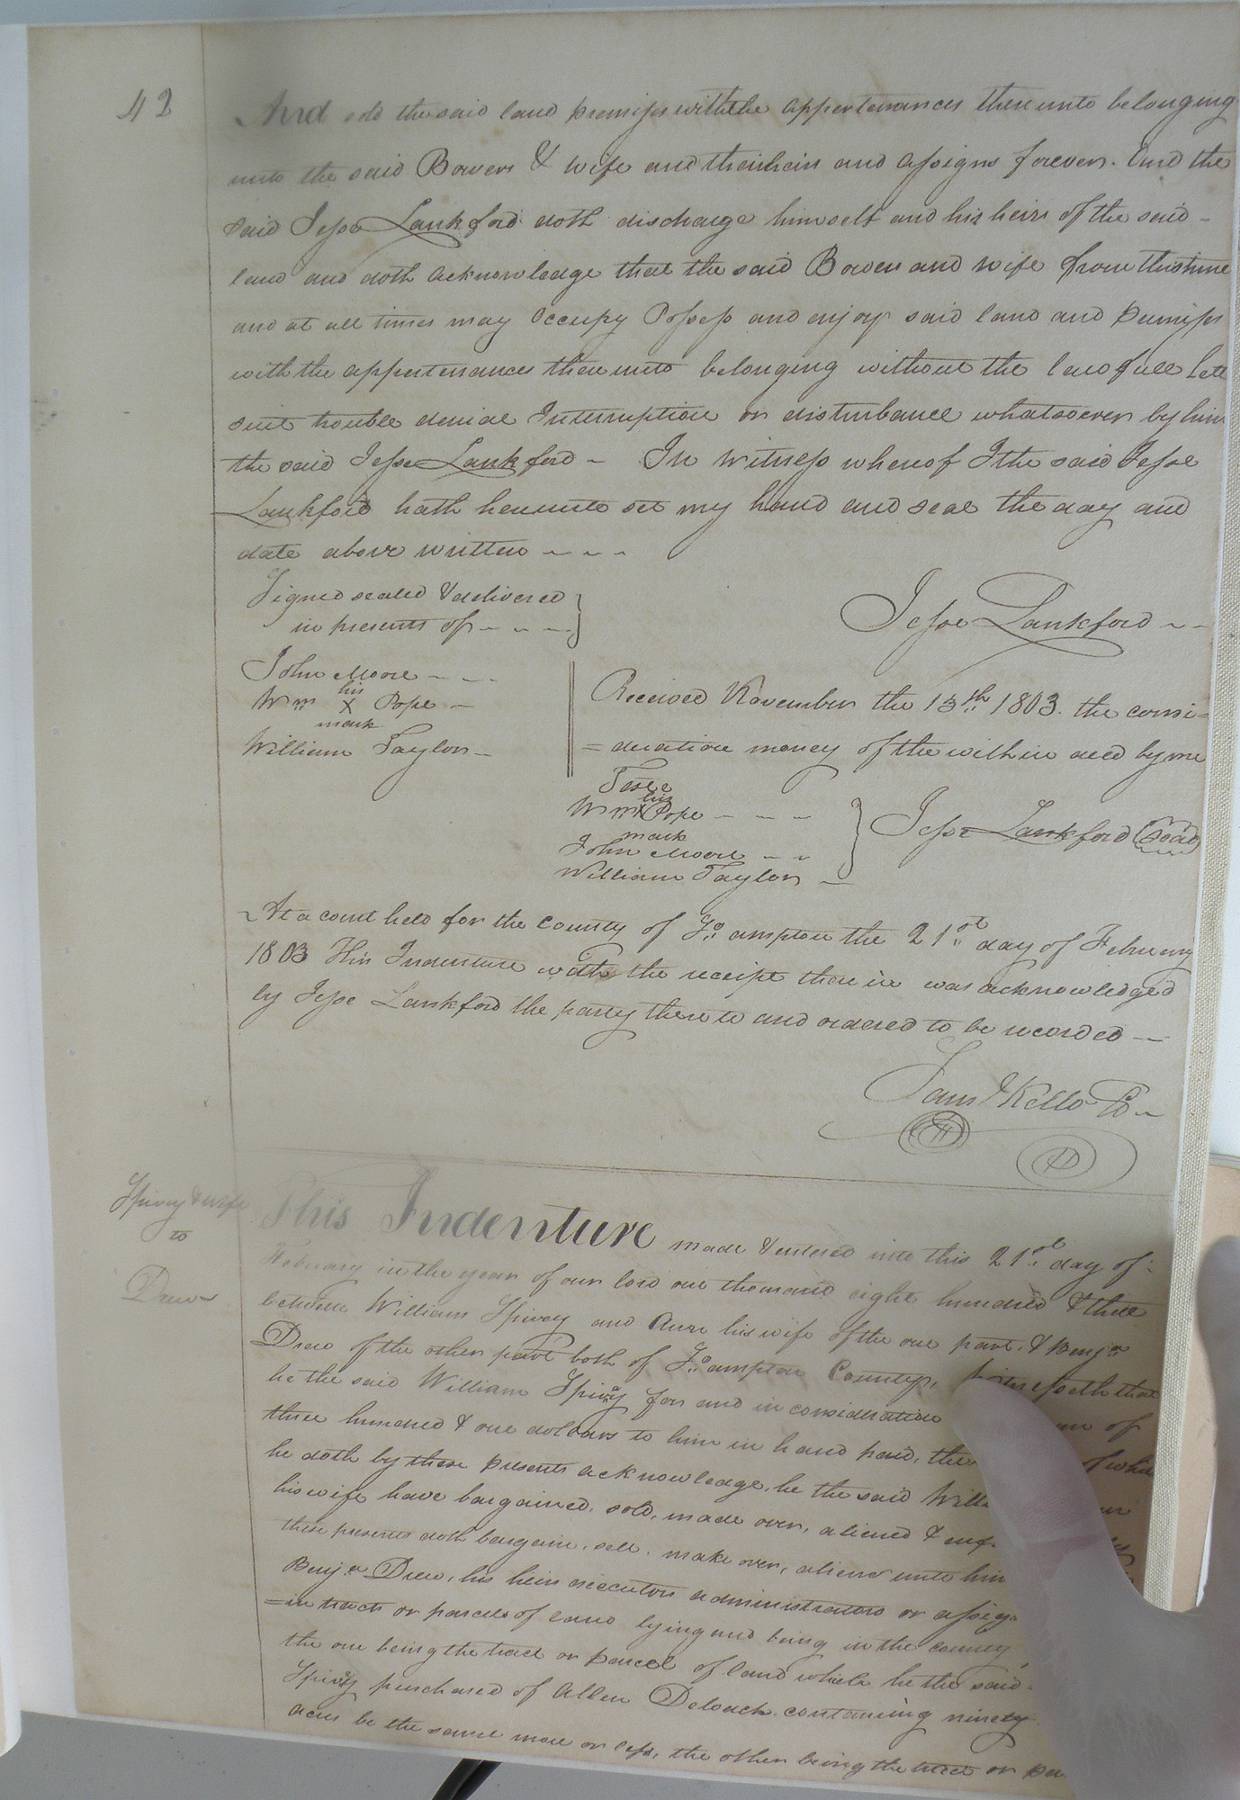 42
And sold the said land premises with the appertenances thereunto belonging
unto the said Bowers & wife and their heirs and assigns forever. And the
said Jesse Lankford doth discharge himself and his heirs of the said -
land and doth acknowledge that the said Bowers and wife from this time
and at all times may Occupy Possess and enjoy said land and premises
with the appertenances thereunto belonging without the lawfull lett
suit trouble denial Interruption or disturbance whatsoever by him
the said Jesse Lankford - In Witness whereof I the said Jesse
Lankford hath hereunto set my hand and seal the day and
date above written - - -
Signed sealed & delivered
in presents of - - -
Jesse Lankford - -
John Moore - - -
Wm his X mark Pope -
William Taylor -
Received November the 13th 1803. the consi-
=deration money of the within deed by me
Teste
Wm his X mark Pope - - -
John Moore - -
William Taylor -
Jesse Lankford (Seal)
At a court held for the County of So.ampton the 21st day of February
1803 This Indenture with the receipt therein was acknowledged
by Jesse Lankford the party thereto and ordered to be recorded -
Saml Kello
Spivey & wife
to
Drew
This Indenture made & entered into this 21st day of
February in the year of our lord one thousand eight hundred & three
between William Spivey and Ann his wife of the one part & Benjn
Drew of the other part both of So.ampton County, Witnesseth that
he the said William Spivey for and in consideration of
three hundred & one dollars to him in hand paid, the of which
he doth by these presents acknowledge, he the said Will
his wife have bargained, sold, made over, aliened &
these presents doth bargain, sell, make over, alien unto him
Benjn Drew, his heirs executors administrators or assigns
=in tracts or parcels of land lying and being in the county
the one being the tract or parcel of land which he the said
Spivey purchased of Allen Deloach containing ninety
acres be the same more or less, the other being the tract or